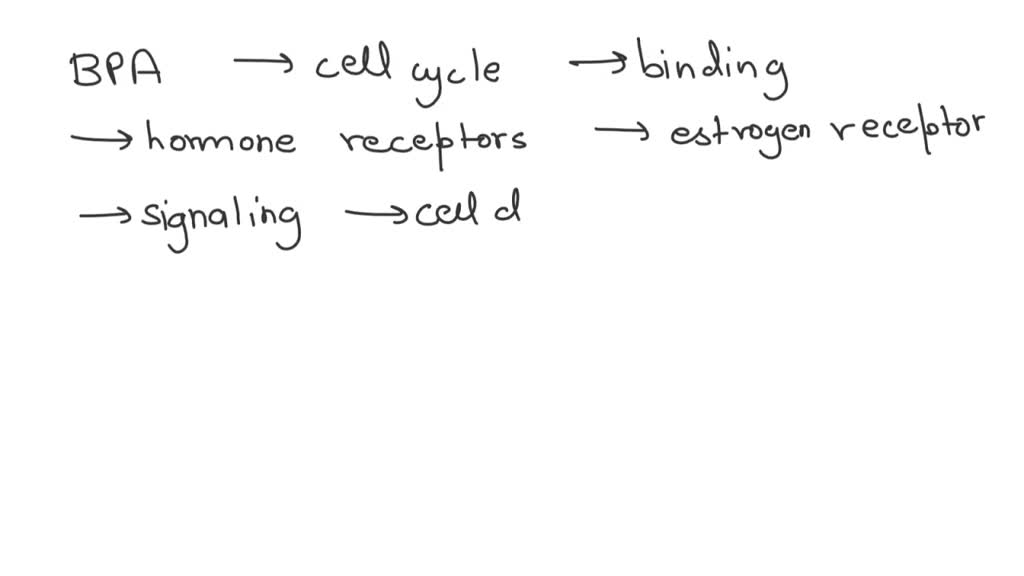 BPA → cell cycle → binding
→ hormone receptors → estrogen receptor
→ signaling → cell d